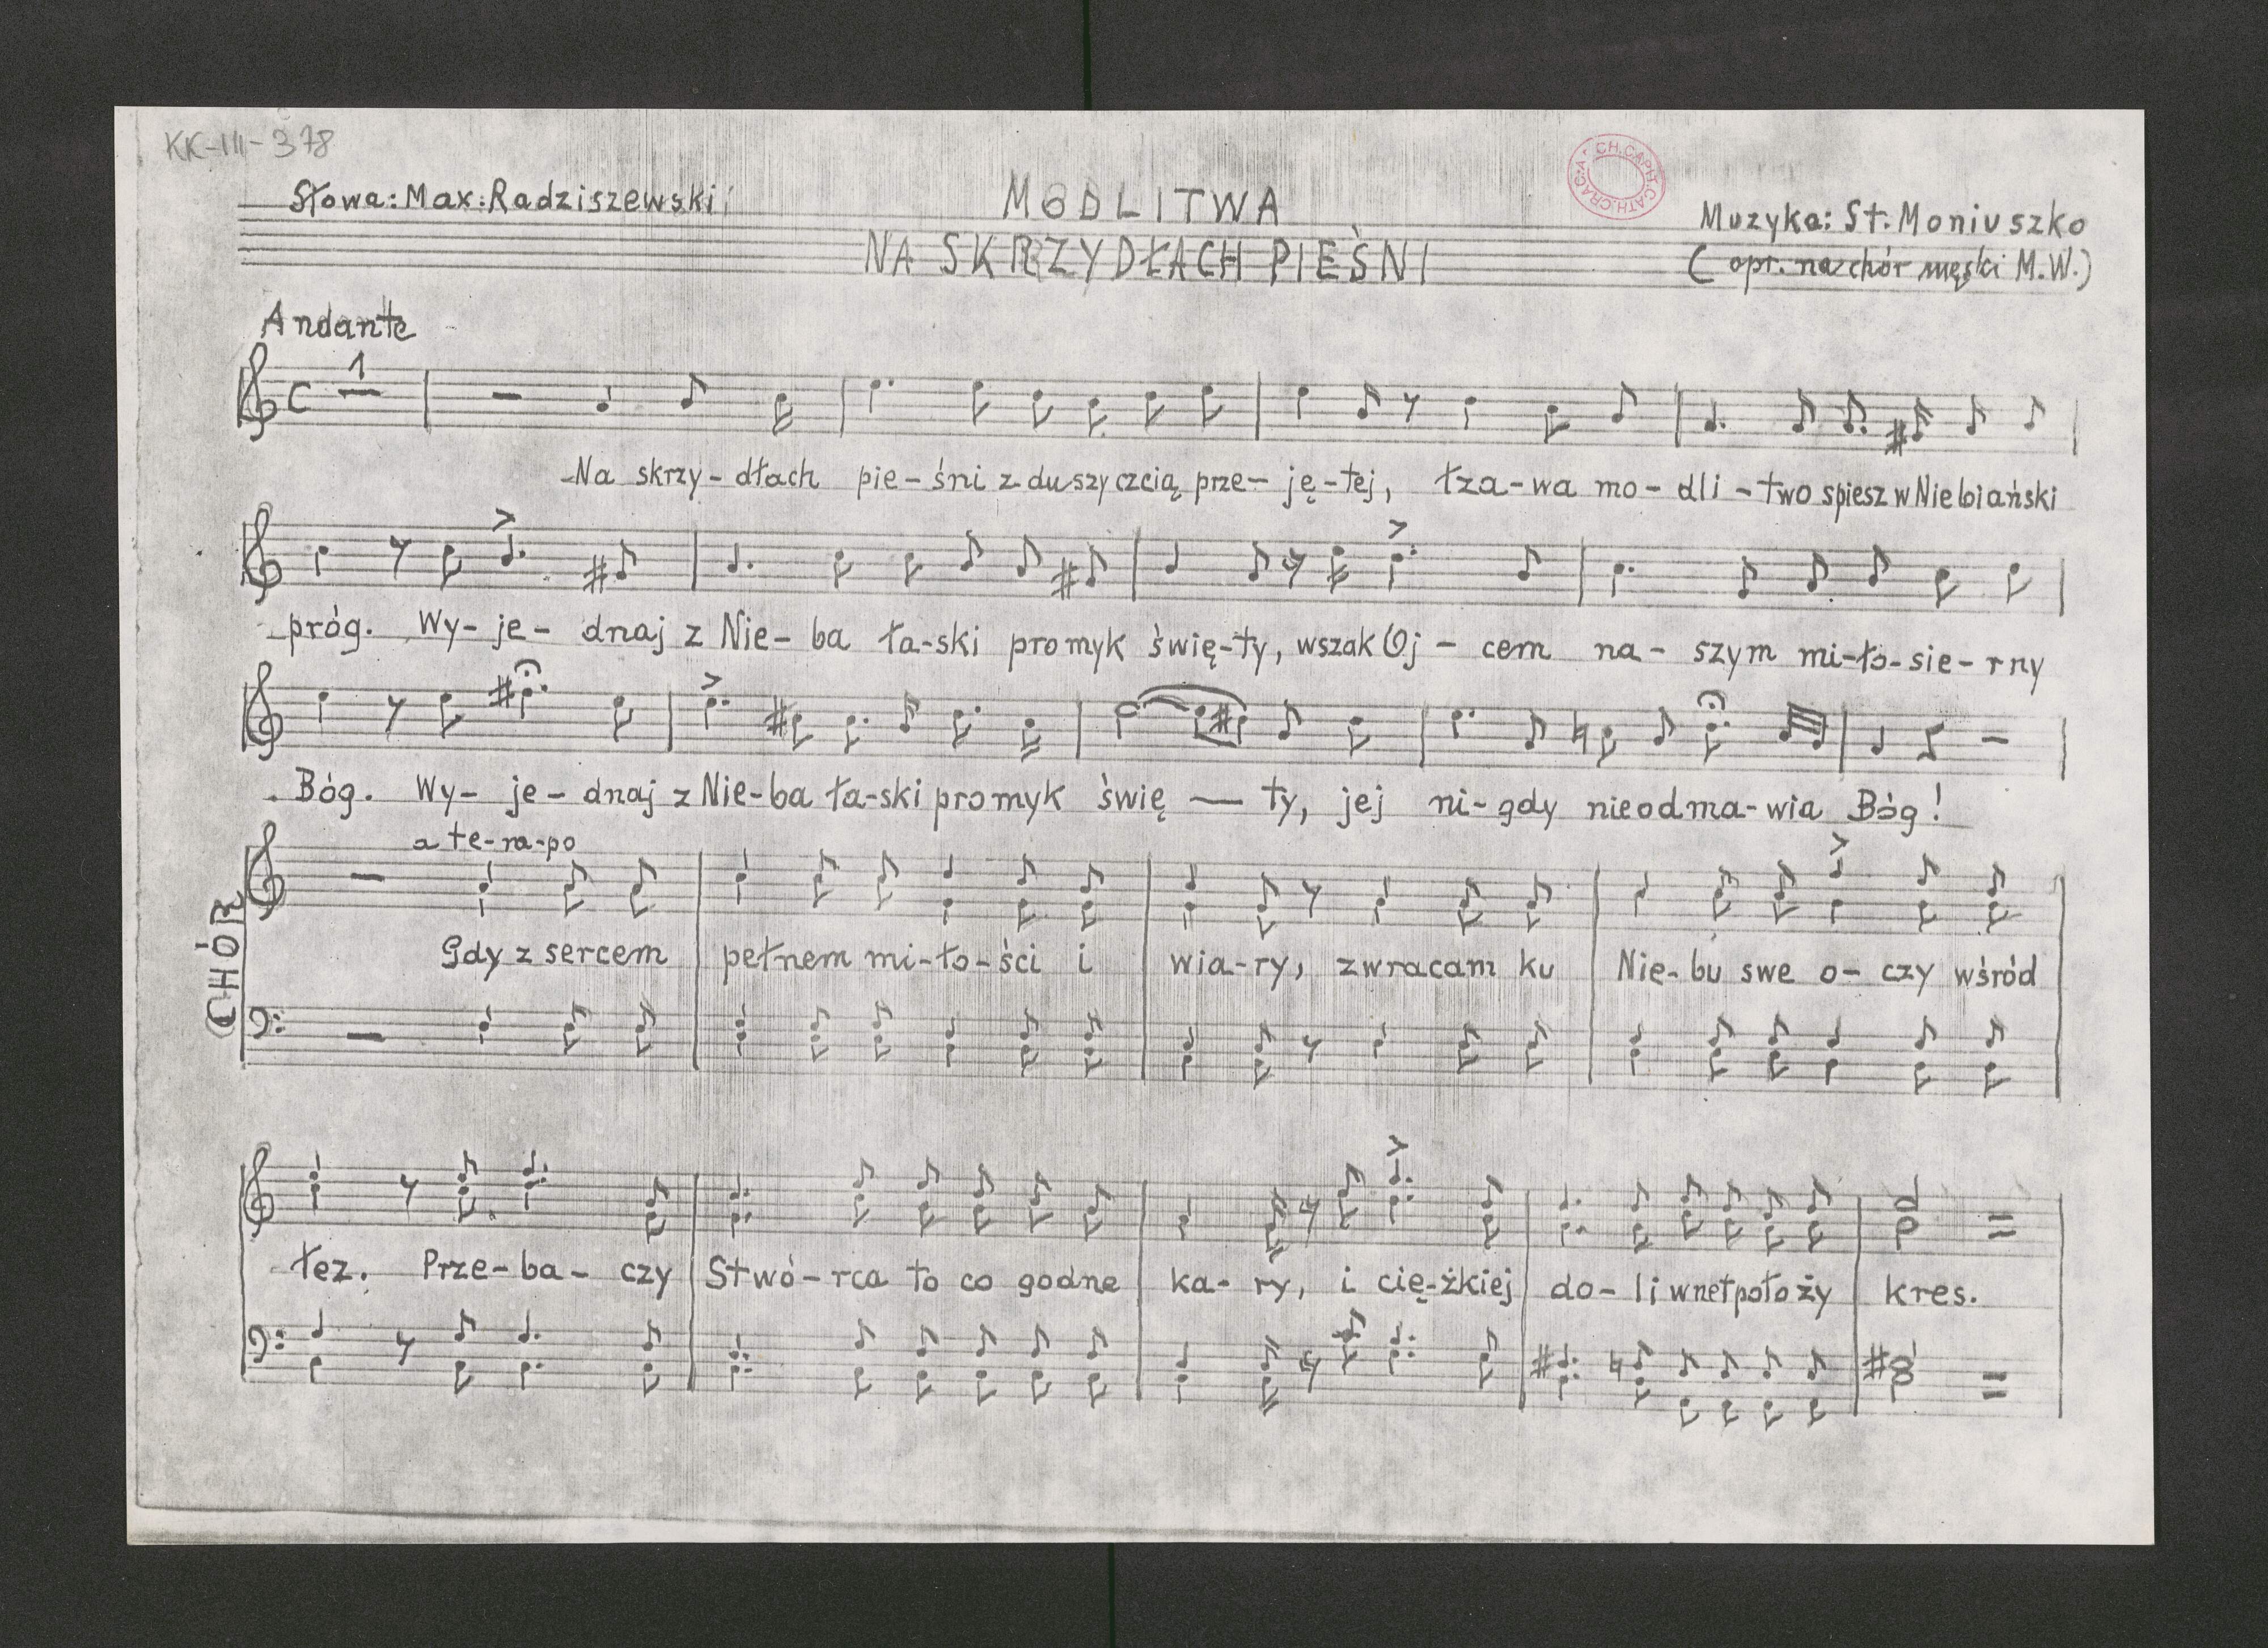 KK-III-378
Słowa: Max: Radziszewski
MODLITWA
NA SKRZYDŁACH PIEŚNI
CH.CAPIT.CATH.CRAC:A
Muzyka: St. Moniuszko
(opr. na chór męski M.W.)
Andante
1
Na skrzy-dłach pie-śni z duszy czcią prze-ję-tej, łza-wa mo-dli-two spiesz w Niebiański
próg. Wy-je-dnaj z Nie-ba ła-ski promyk świę-ty, wszak Oj-cem na-szym mi-ło-sie-rny
Bóg. Wy-je-dnaj z Nie-ba ła-ski promyk świę-ty, jej ni-gdy nieodma-wia Bóg!
a te-ra-po
CHÓR
Gdy z sercem pełnem mi-ło-ści i wia-ry, zwracam ku Nie-bu swe o-czy wśród
łez. Prze-ba-czy Stwó-rca to co godne ka-ry, i cię-żkiej do-li wnet położy kres.